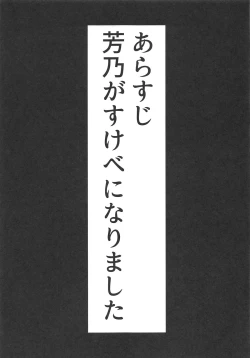 あらすじ
芳乃がすけべになりました